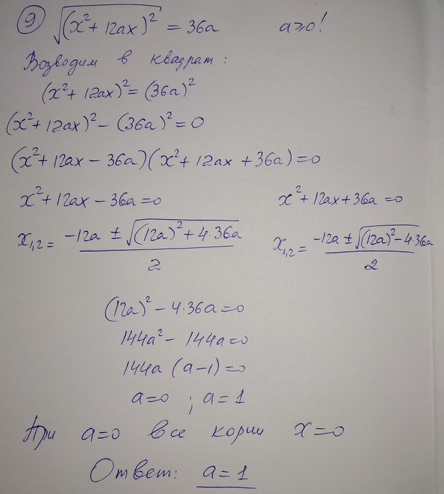 9 √(x²+12ax)² = 36a a≥0!
Возводим в квадрат:
(x²+12ax)² = (36a)²
(x²+12ax)² - (36a)² = 0
(x²+12ax-36a)(x²+12ax+36a)=0
x²+12ax-36a=0 x²+12ax+36a=0
x₁,₂ = (-12a ± √((12a)²+4·36a))/2 x₁,₂ = (-12a ± √((12a)²-4·36a))/2
(12a)²-4·36a=0
144a²-144a=0
144a(a-1)=0
a=0 ; a=1
При a=0 все корни x=0
Ответ: a=1